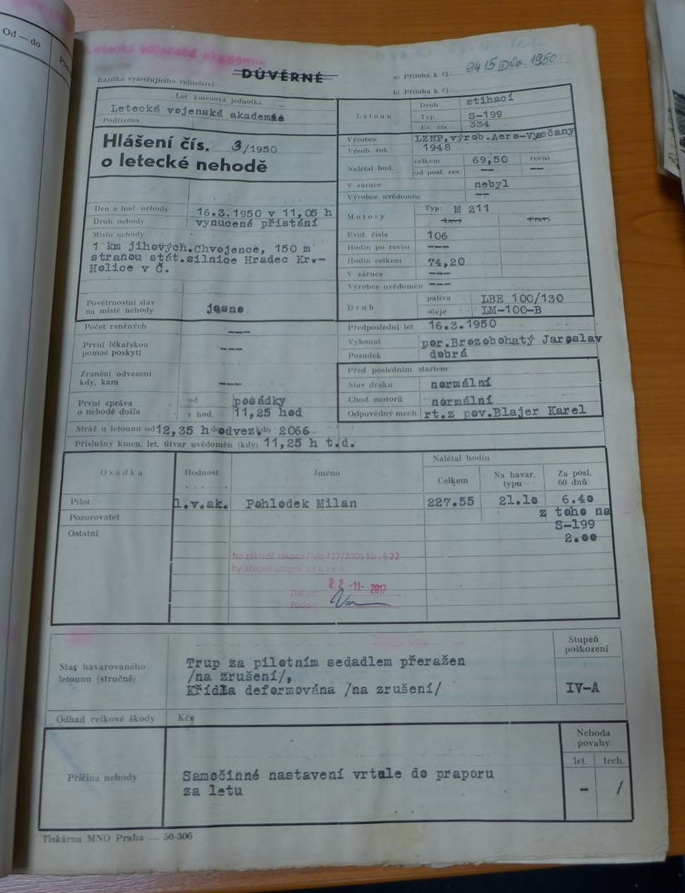 Od — do
Letecká vojenská akademie
DŮVĚRNÉ
a: Příloha k čj.
9415 Dův. 1950
Razítko vyšetřujícího velitelství
b: Příloha k čj.
Let. kmenová jednotka
Letecká vojenská akademie
Podřízena
Hlášení čís. 3/1950
o letecké nehodě
Den a hod. nehody 16.3.1950 v 11,05 h
Druh nehody vynucené přistání
Místo nehody
1 km jihových.Chvojence, 150 m
stranou stát.silnice Hradec Kr.-
Holice v Č.
Povětrnostní stav
na místě nehody jasno
Počet raněných ---
První lékařskou
pomoc poskytl ---
Zranění odvezeni
kdy, kam ---
První zpráva od posádky
o nehodě došla v hod. 11,25 hod
Stráž u letounu od 12,35 h do odvez. do 2066
Příslušný kmen. let. útvar uvědoměn (kdy) 11,25 h t.d.
Letoun
Druh stihací
Typ S-199
Ev. čís. 334
Výrobce LZNP, výrob.Aero-Vysočany
Výrob. rok 1948
Nalétal hod. celkem 69,50 revisí
od posl. rev. --- ---
V záruce nebyl
Výrobce uvědoměn ---
Motory
Typ: M 211
levý pravý
Evid. čísla 106
Hodin po revisi ---
Hodin celkem 74,20
V záruce ---
Výrobce uvědoměn ---
Druh paliva LBE 100/130
oleje LM-100-B
Předposlední let 16.3.1950
Vykonal por.Brozobohatý Jaroslav
Posudek dobrá
Před posledním startem:
Stav draku normální
Chod motorů normální
Odpovědný mech. rt.z pov.Blajer Karel
Osádka Hodnost Jméno Nalétal hodin
Celkem Na havar. typu Za posl. 60 dnů
Pilot 1.v.ak. Pohlodek Milan 227.55 21.10 6.40
Pozorovatel z toho na
Ostatní S-199
2.00
Na základě zákona číslo 412/2005 Sb., § 22
byl stupeň utajení zrušen
Datum: 22 -11- 2017
Podpis:
Stav havarovaného
letounu (stručně)
Trup za pilotním sedadlem přeražen
/na zrušení/,
Křídla deformována /na zrušení/
Stupeň
poškození
IV-A
Odhad celkové škody Kčs
Příčina nehody
Samočinné nastavení vrtule do praporu
za letu
Nehoda
povahy
let. tech.
- /
Tiskárna MNO Praha — 50-306